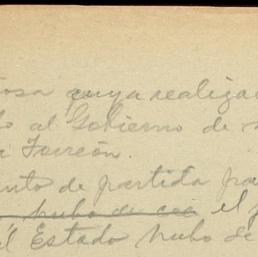 osa cuya realiza
o al Gobierno de
a Torreón.
nto de partida pa
hubo de el
l Estado hubo de